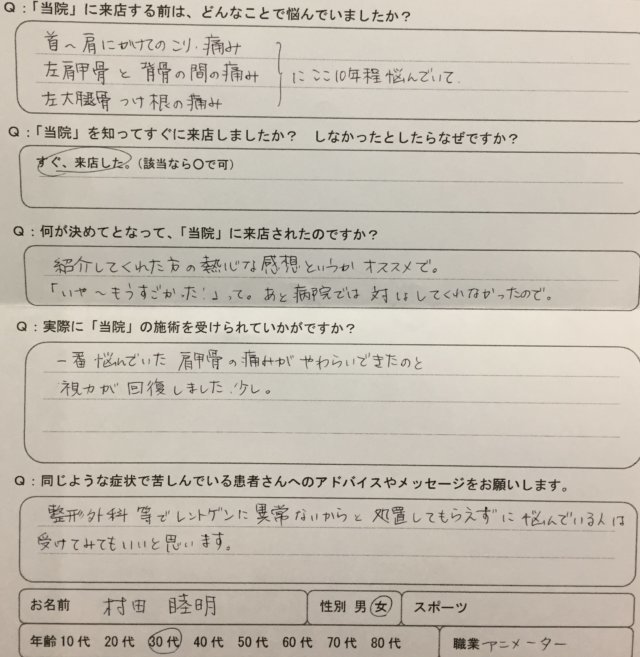 Q：「当院」に来店する前は、どんなことで悩んでいましたか？
首～肩にかけてのこり・痛み
左肩甲骨と背骨の間の痛み
左大腿骨つけ根の痛み
にここ10年程悩んでいて.
Q：「当院」を知ってすぐに来店しましたか？　しなかったとしたらなぜですか？
すぐ、来店した。（該当なら〇で可）
Q：何が決めてとなって、「当院」に来店されたのですか？
紹介してくれた方の熱心な感想というか オススメで。
「いや～もうすごかった！」って。あと病院では 対処してくれなかったので。
Q：実際に「当院」の施術を受けられていかがですか？
一番 悩んでいた 肩甲骨の痛みが やわらいできたのと
視力が 回復しました.少し。
Q：同じような症状で苦しんでいる患者さんへのアドバイスやメッセージをお願いします。
整形外科 等でレントゲンに異常ないからと 処置してもらえずに 悩んでいる人は
受けてみてもいいと思います。
お名前 村田 睦明 性別 男 女 スポーツ
年齢 10代 20代 30代 40代 50代 60代 70代 80代 職業 アニメーター